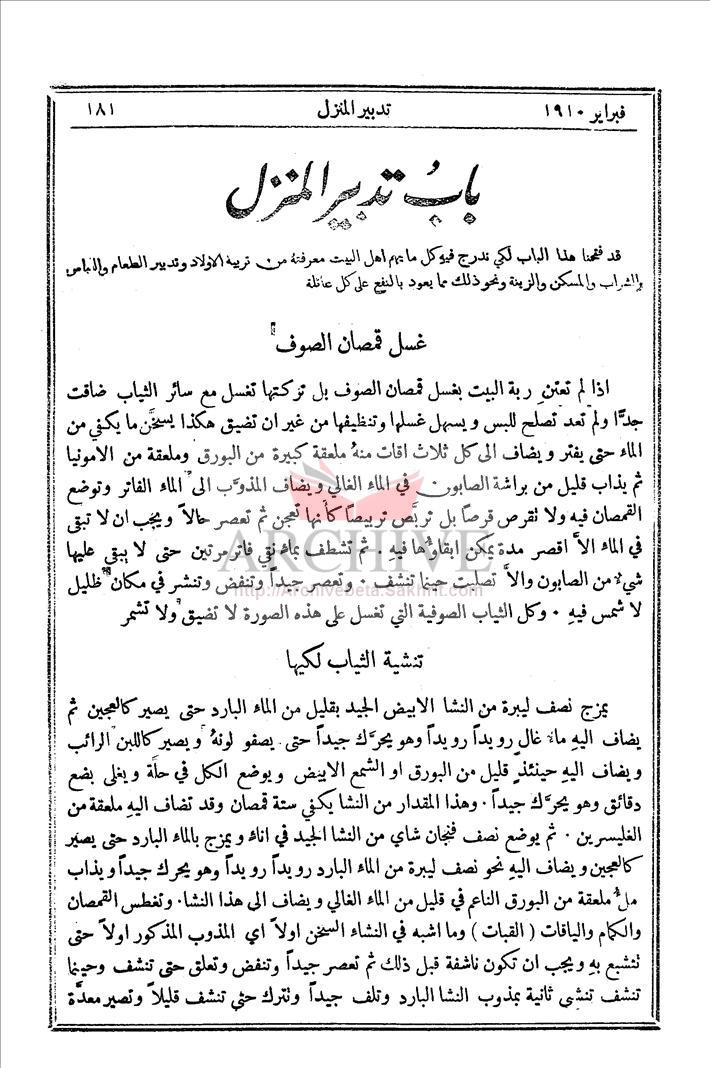 فبراير ١٩١٠ تدبير المنزل ١٨١
باب تدبير المنزل
قد فتحنا هذا الباب لكي ندرج فيه كل ما يهم اهل البيت معرفته من تربية الاولاد وتدبير الطعام واللباس
والشراب والمسكن والزينة ونحو ذلك مما يعود بالنفع على كل عائلة
غسل قمصان الصوف
اذا لم تعتنِ ربة البيت بغسل قمصان الصوف بل تركتها تغسل مع سائر الثياب ضاقت
جدًّا ولم تعد تصلح للبس ويسهل غسلها وتنظيفها من غير ان تضيق هكذا يسخَّن ما يكفي من
الماء حتى يفتر ويضاف الى كل ثلاث اقات منهُ ملعقة كبيرة من البورق وملعقة من الامونيا
ثم يذاب قليل من براشة الصابون في الماء الغالي ويضاف المذوَّب الى الماء الفاتر وتوضع
القمصان فيه ولا تقرص قرصاً بل تربَّص تربيصاً كأنها تعجن ثم تعصر حالاً ويجب ان لا تبقى
في الماء الاَّ اقصر مدة يمكن ابقاؤُها فيه ٠ ثم تشطف بماء نقي فاتر مرتين حتى لا يبقى عليها
شيءٌ من الصابون والاَّ تصلبت حينما تنشف ٠ وتعصر جيداً وتنفض وتنشر في مكان ظليل
لا شمس فيهِ ٠ وكل الثياب الصوفية التي تغسل على هذه الصورة لا تضيق ولا تشمر
ARCHIVE
http://Archivebeta.Sakhrit.com
تنشية الثياب لكيها
يمزج نصف ليبرة من النشا الابيض الجيد بقليل من الماء البارد حتى يصير كالعجين ثم
يضاف اليهِ ماءٌ غالٍ رويداً رويداً وهو يحرَّك جيداً حتى يصفو لونهُ ويصير كاللبن الرائب
ويضاف اليه حينئذٍ قليل من البورق او الشمع الابيض ويوضع الكل في حلَّة ويغلى بضع
دقائق وهو يحرَّك جيداً ٠ وهذا المقدار من النشا يكفي ستة قمصان وقد تضاف اليهِ ملعقة من
الغليسرين ٠ ثم يوضع نصف فنجان شاي من النشا الجيد في اناءٍ ويمزج بالماء البارد حتى يصير
كالعجين ويضاف اليهِ نحو نصف ليبرة من الماء البارد رويداً رويداً وهو يحرك جيداً ويذاب
ملءُ ملعقة من البورق الناعم في قليل من الماء الغالي ويضاف الى هذا النشا ٠ وتغطس القمصان
والكمام والياقات ( القبات ) وما اشبه في النشاء السخن اولاً اي المذوب المذكور اولاً حتى
تتشبع بهِ ويجب ان تكون ناشفة قبل ذلك ثم تعصر جيداً وتنفض وتعلق حتى تنشف وحينما
تنشف تنشى ثانية بمذوب النشا البارد وتلف جيداً وتترك حتى تنشف قليلاً وتصير معدَّة